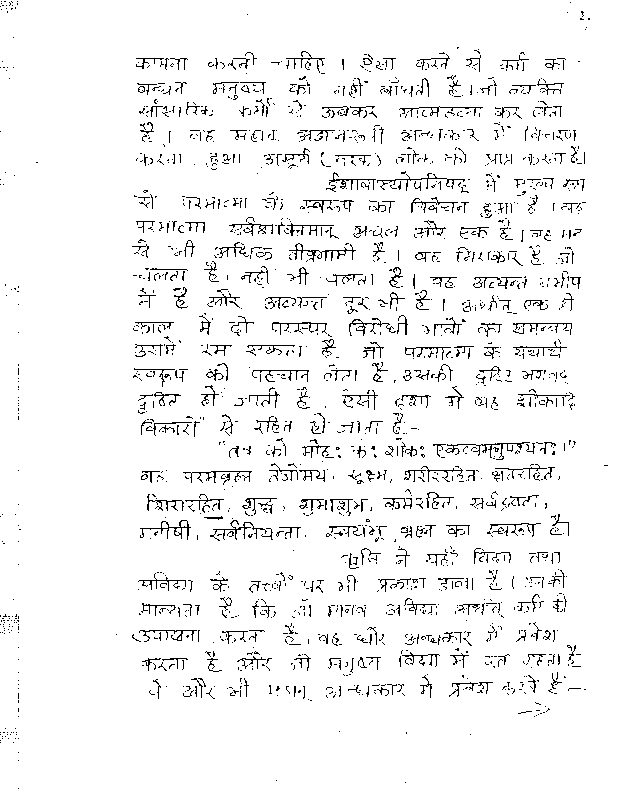 2.
कामना करनी चाहिए । ऐसा करने से कर्म का
बन्धन मनुष्य को नहीं बाँधती है । जो व्यक्ति
सांसारिक कर्मों से ऊबकर आत्महत्या कर लेता
है । वह महान अज्ञानरूपी अन्धकार में विचरण
करता हुआ असूर्य (नरक) लोक को प्राप्त करता है।
ईशावास्योपनिषद् में मुख्य रूप
से परमात्मा के स्वरूप का विवेचन हुआ है । वह
परमात्मा सर्वशक्तिमान् अचल और एक है । वह मन
से भी अधिक तीव्रगामी है । वह निराकार है जो
चलता है, नहीं भी चलता है । वह अत्यन्त समीप
में है और अत्यन्त दूर भी है । अर्थात् एक ही
काल में दो परस्पर विरोधी भावों का समन्वय
उसमें रम सकता है. जो परमात्मा के यथार्थ
स्वरूप को पहचान लेता है, उसकी दृष्टि भगवद्
दृष्टि हो जाती है. ऐसी दशा में वह शोकादि
विकारों से रहित हो जाता है:-
"तत्र को मोह: क: शोक: एकत्वमनुपश्यन: ।"
वह परमब्रह्म तेजोमय, सूक्ष्म, शरीररहित, क्षतरहित,
शिरारहित, शुद्ध, शुभाशुभ, कर्मरहित, सर्वद्रष्टा,
मनीषी, सर्वनियन्ता, स्वयंभू ब्रह्म का स्वरूप है।
ऋषि ने यहाँ विद्या तथा
अविद्या के तत्वों पर भी प्रकाश डाला है । उनकी
मान्यता है कि जो मानव अविद्या अर्थात् कर्म की
उपासना करता है, वह घोर अन्धकार में प्रवेश
करता है और जो मनुष्य विद्या में रत रहता है
वे और भी महान् अन्धकार में प्रवेश करते हैं -